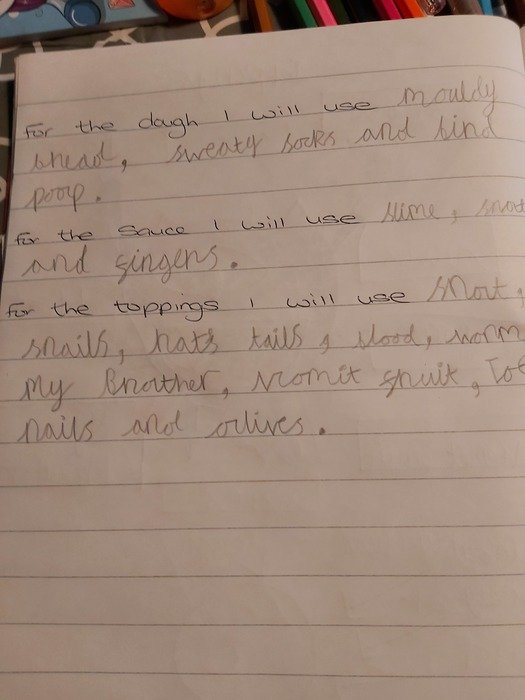 for the dough I will use mouldy
bread, sweaty socks and bird
poop.
for the sauce I will use slime, snot
and gingers.
for the toppings I will use snort,
snails, rats tails, blood, worm
My Brother, vromit fruit, Toe
nails and orlives.